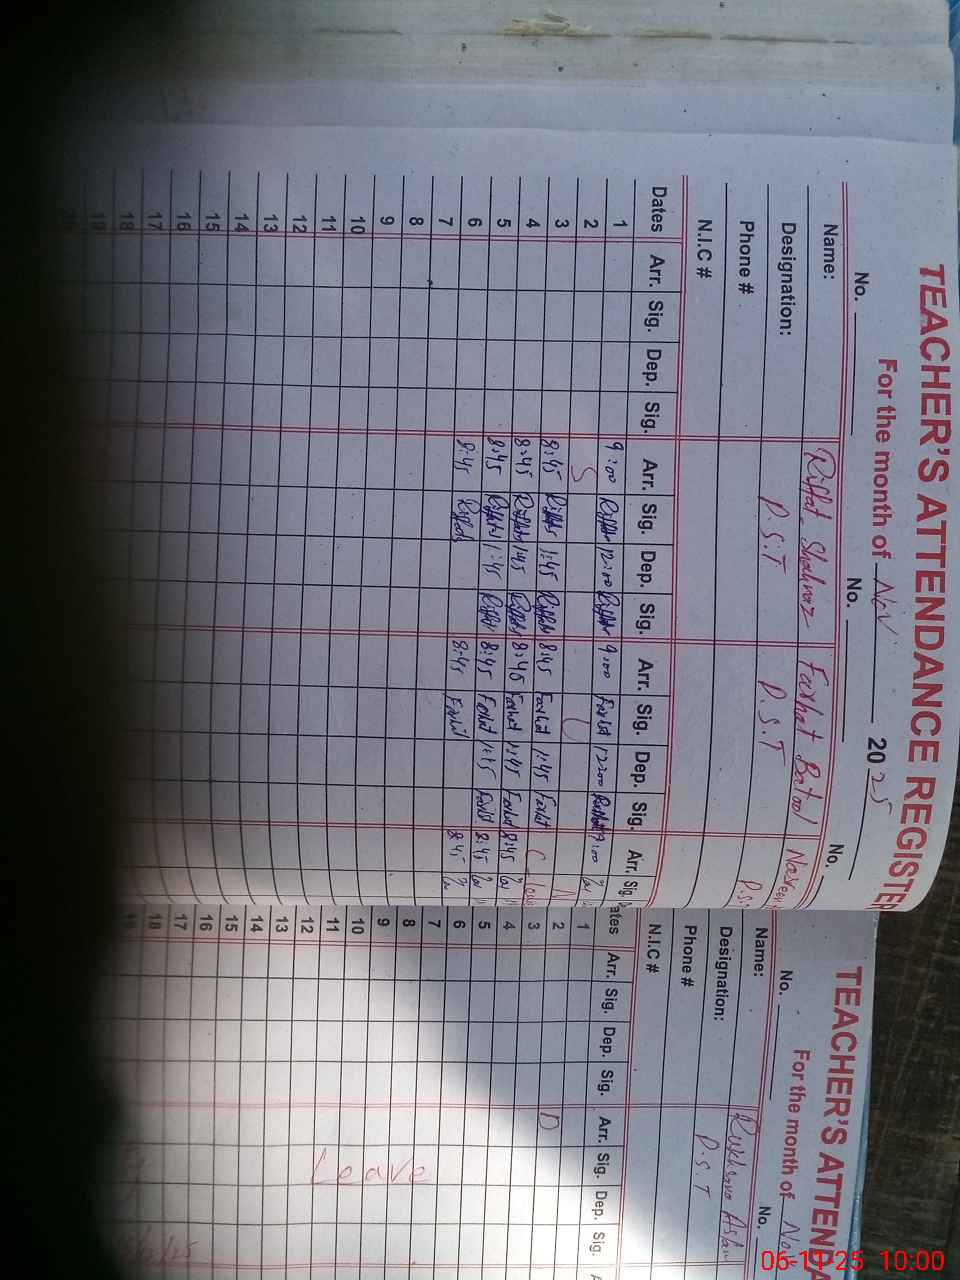 TEACHER'S ATTENDANCE REGISTER
For the month of Nov 2025
No. No. No.
Name: Riffat Shahnaz Farhat Batool Nasreen
Designation: P.S.T P.S.T P.S.
Phone #
N.I.C #
Dates Arr. Sig. Dep. Sig. Arr. Sig. Dep. Sig. Arr. Sig. Dep. Sig. Arr. Sig.
1 9:00 Riffat 12:00 Riffat 9:00 Farhat 12:00 9:00
2 S
3 8:45 Riffat 1:45 Riffat 8:45 Farhat 1:45 Farhat
4 8:45 Riffat 1:45 Riffat 8:45 Farhat 1:45 Farhat 8:45
5 8:45 Riffat 1:45 Riffat 8:45 Farhat 1:45 Farhat 8:45
6 8:45 Riffat 8:45 Farhat 8:45
7
8
9
10
11
12
13
14
15
16
17
18
19
TEACHER'S ATTENDA
For the month of Nov
No. No.
Name: Rukhsana Aslam
Designation: P.S.T
Phone #
N.I.C #
ates Arr. Sig. Dep. Sig. Arr. Sig. Dep. Sig.
1
2 D
3
4
5
6
7
8
9
10
11
12
13
14
15
16
17
18
19
Leave
06-11-25 10:00